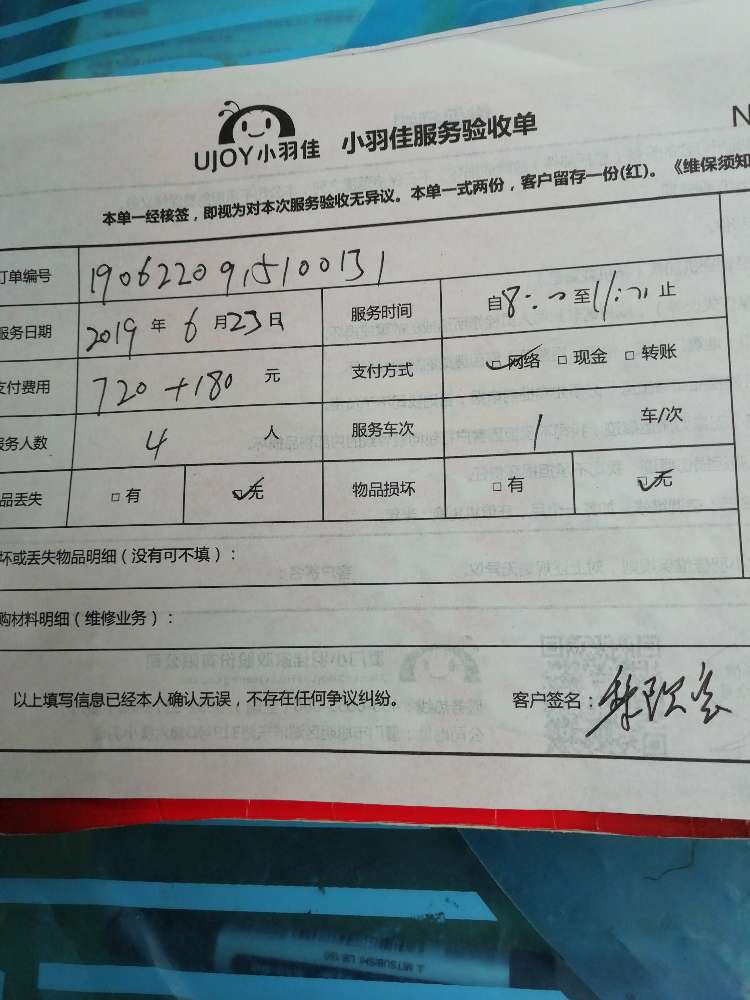 UJOY小羽佳 小羽佳服务验收单 N
本单一经核签，即视为对本次服务验收无异议。本单一式两份，客户留存一份(红)。《维保须知
订单编号 1906220915100131
服务日期 2019 年 6 月 23 日 服务时间 自 8: 至 11: 止
支付费用 720+180 元 支付方式 ☑网络 □现金 □转账
服务人数 4 人 服务车次 1 车/次
品丢失 □有 ☑无 物品损坏 □有 ☑无
坏或丢失物品明细（没有可不填）：
购材料明细（维修业务）：
以上填写信息已经本人确认无误，不存在任何争议纠纷。 客户签名：
MITSUBISHI